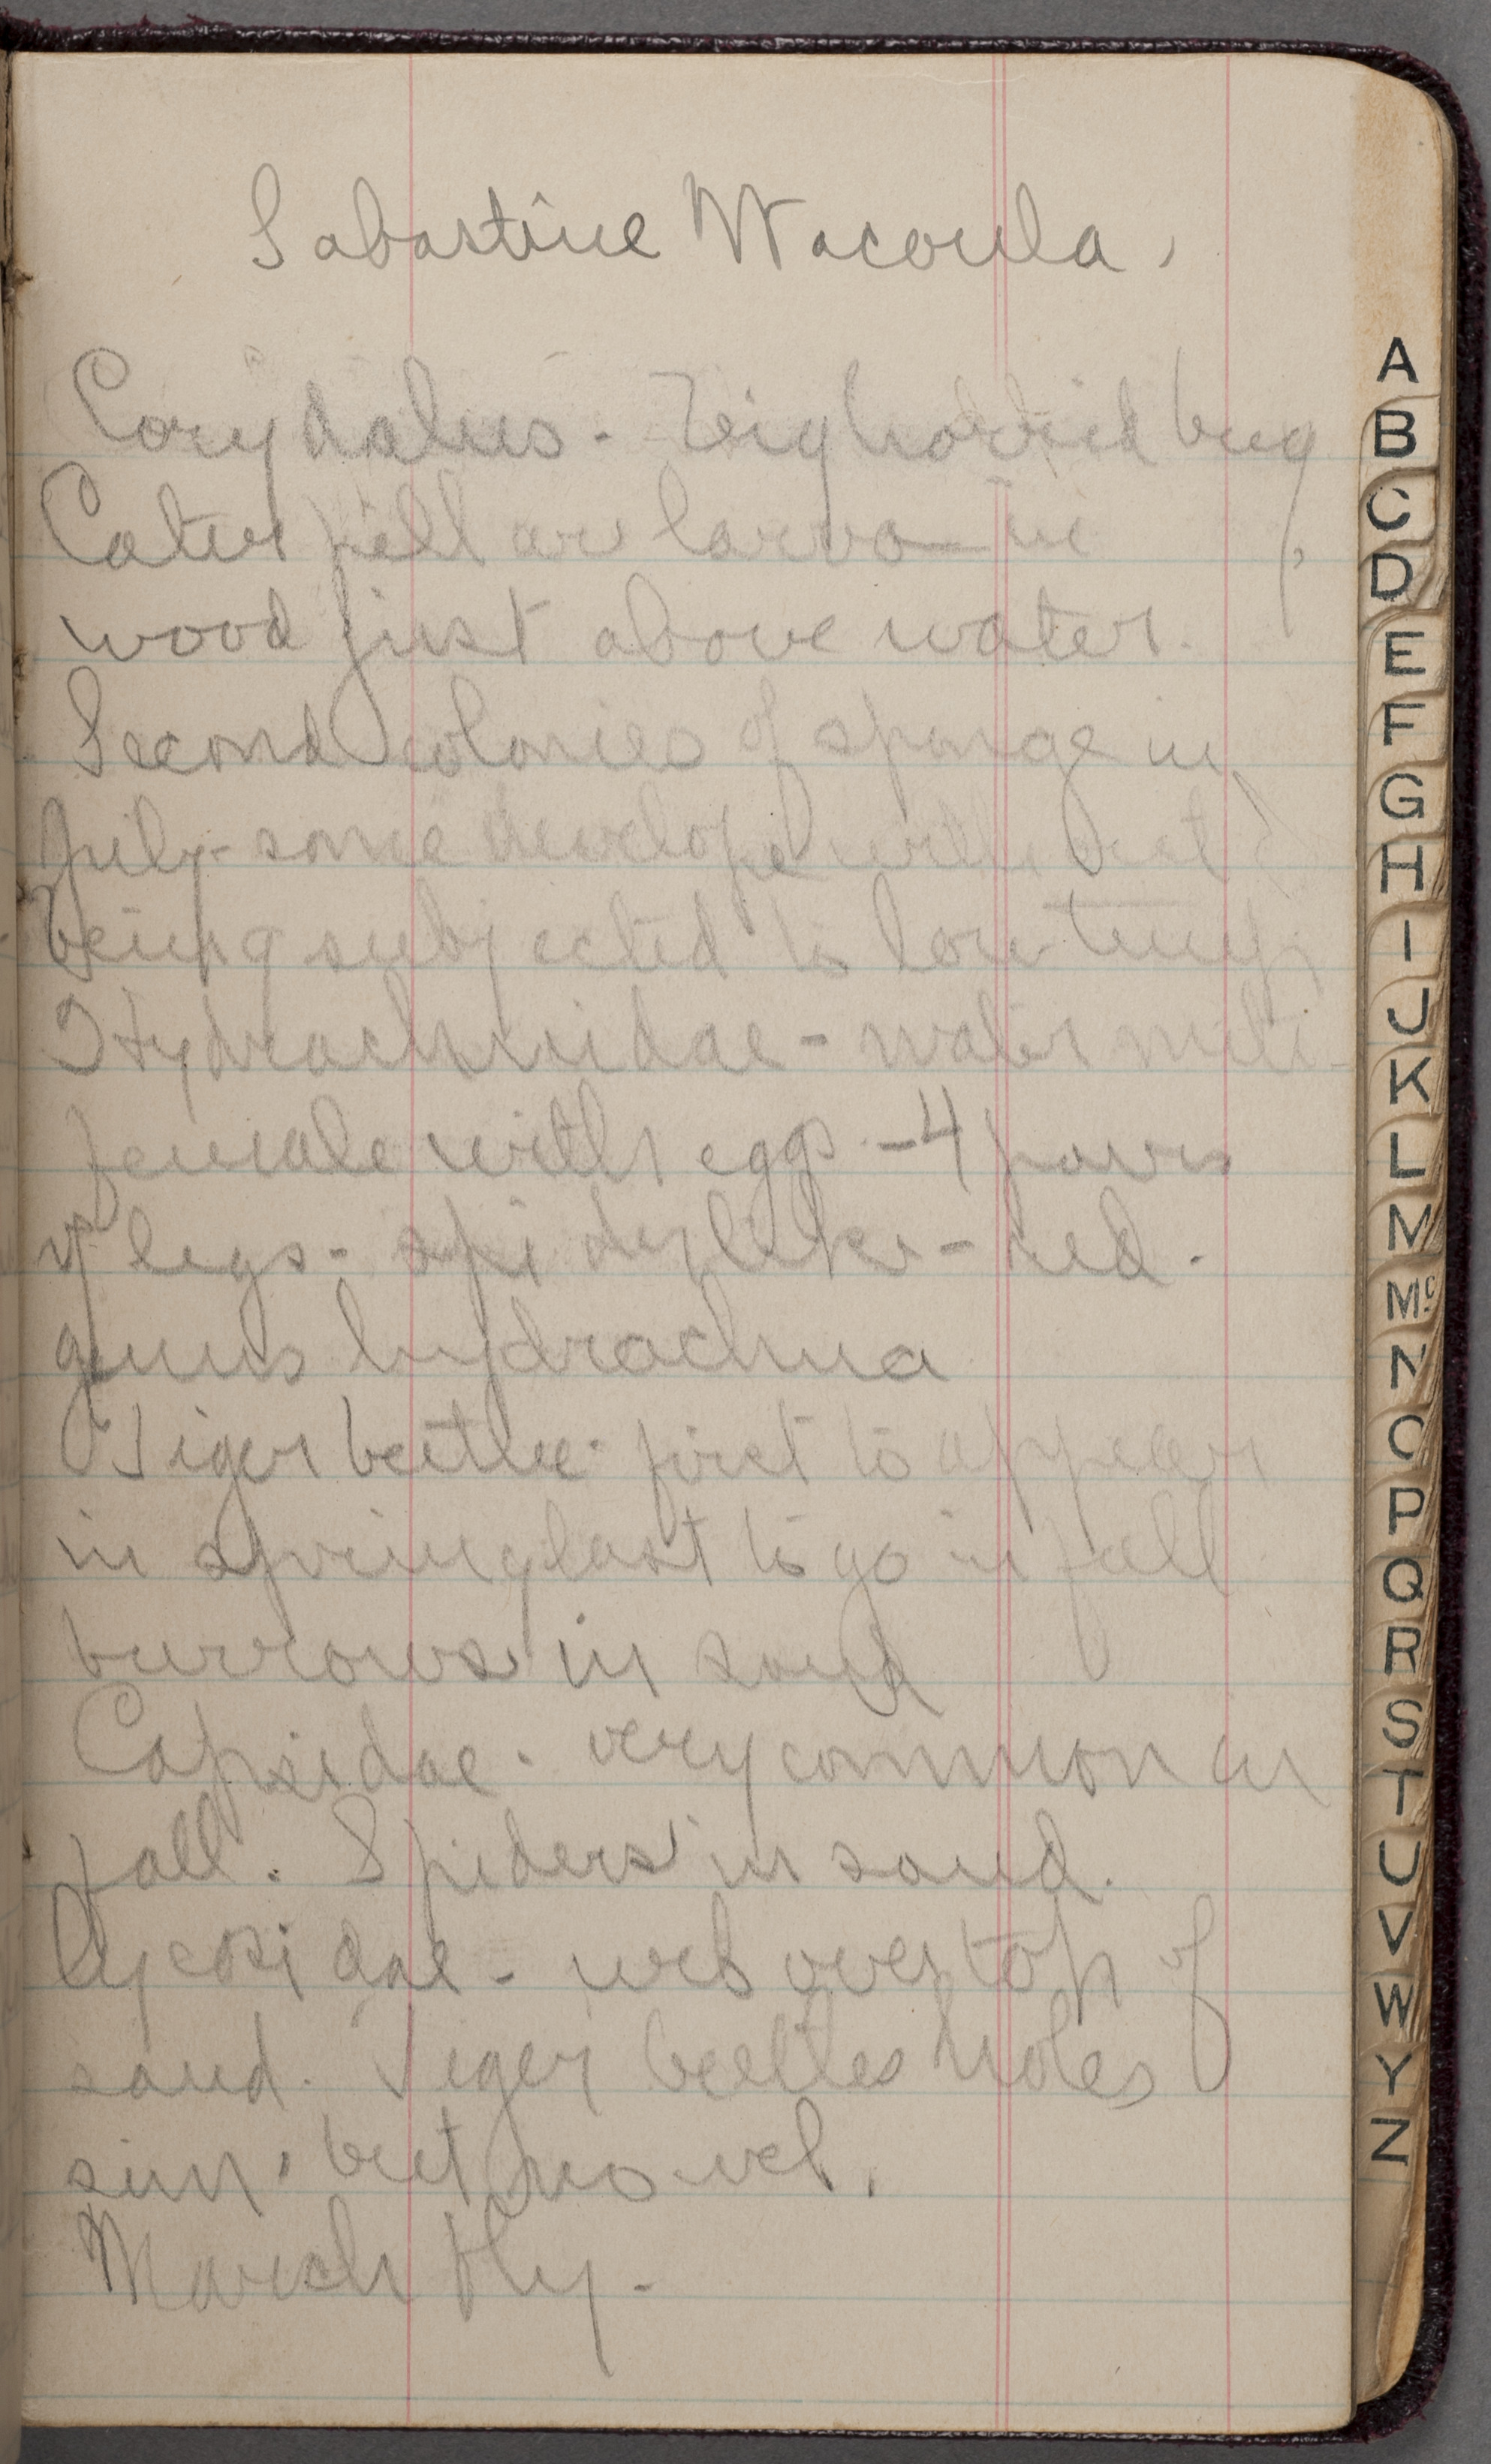 Sabastine Wacoula,
Corydalus - big horrid bug
Caterpillar larva - in
wood just above water.
Second colonies of sponge in
July - some develope without
being subjected to low temp
Hydrachnidae - water mite -
female with eggs - 4 pairs
of legs - spider like - red.
genus hydrachna
Tiger beetle - first to appear
in spring last to go in fall
burrows in sand
Capsidae - very common in
fall. Spiders in sand.
Lycosidae - web over top of
sand. Tiger beetles holes
sim, but no web.
March fly -
A
B
C
D
E
F
G
H
I
J
K
L
M
Mc
N
O
P
Q
R
S
T
U
V
W
Y
Z